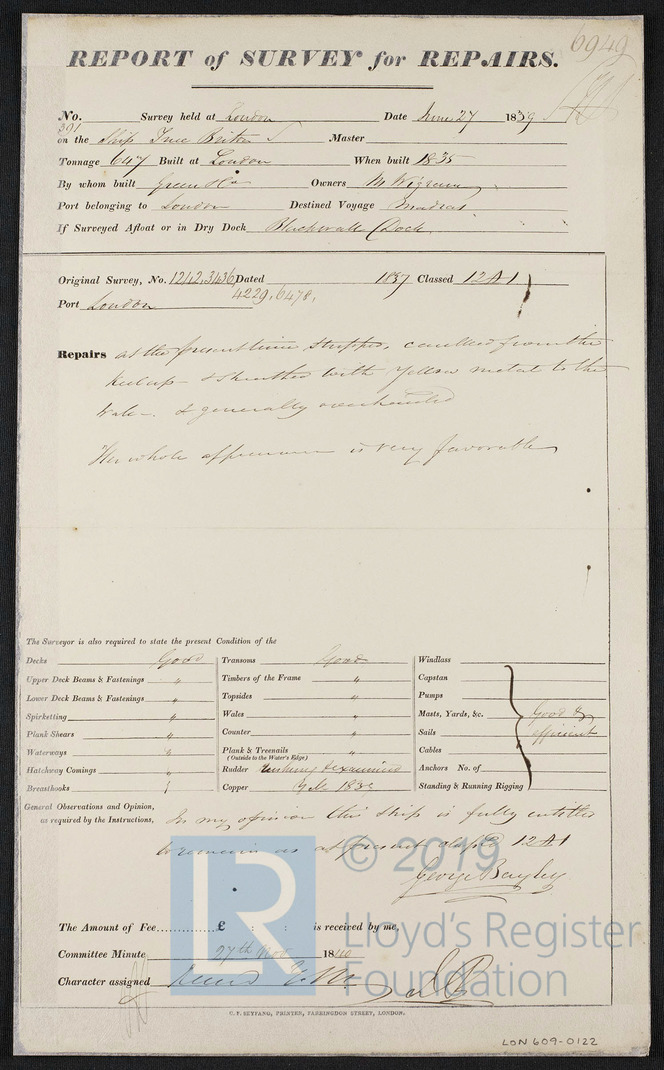 6949
REPORT of SURVEY for REPAIRS.
No. 391 Survey held at London Date June 27 1839
on the Ship True Briton Master
Tonnage 647 Built at London When built 1835
By whom built Green & Co Owners M Wigram
Port belonging to London Destined Voyage Madras
If Surveyed Afloat or in Dry Dock Blackwall Dock
Original Survey, No. 1242,3436, Dated 1837 Classed 12 A 1
4229, 6478,
Port London
Repairs at the present time stripped, caulked from the
Keel up & sheathed with yellow metal to the
Wales. & generally overhauled
Her whole appearance is very favorable
The Surveyor is also required to state the present Condition of the
Decks Good Transoms Good Windlass
Upper Deck Beams & Fastenings " Timbers of the Frame " Capstan
Lower Deck Beams & Fastenings " Topsides " Pumps
Spirketting " Wales " Masts, Yards, &c. Good &
Plank Shears " Counter " Sails efficient
Waterways " Plank & Treenails " Cables
(Outside to the Water's Edge)
Hatchway Comings " Rudder & examined Anchors No. of
Breasthooks " Copper Standing & Running Rigging
General Observations and Opinion, In my opinion this Ship is fully entitled
as required by the Instructions, to remain as at present classed 12 A 1
George Bayley
The Amount of Fee £ : : is received by me,
Committee Minute 27th Nov 1840
Character assigned
C. F. SEYFANG, PRINTER, FARRINGDON STREET, LONDON.
LON 609-0122
LR
© 2019
Lloyd's Register
Foundation